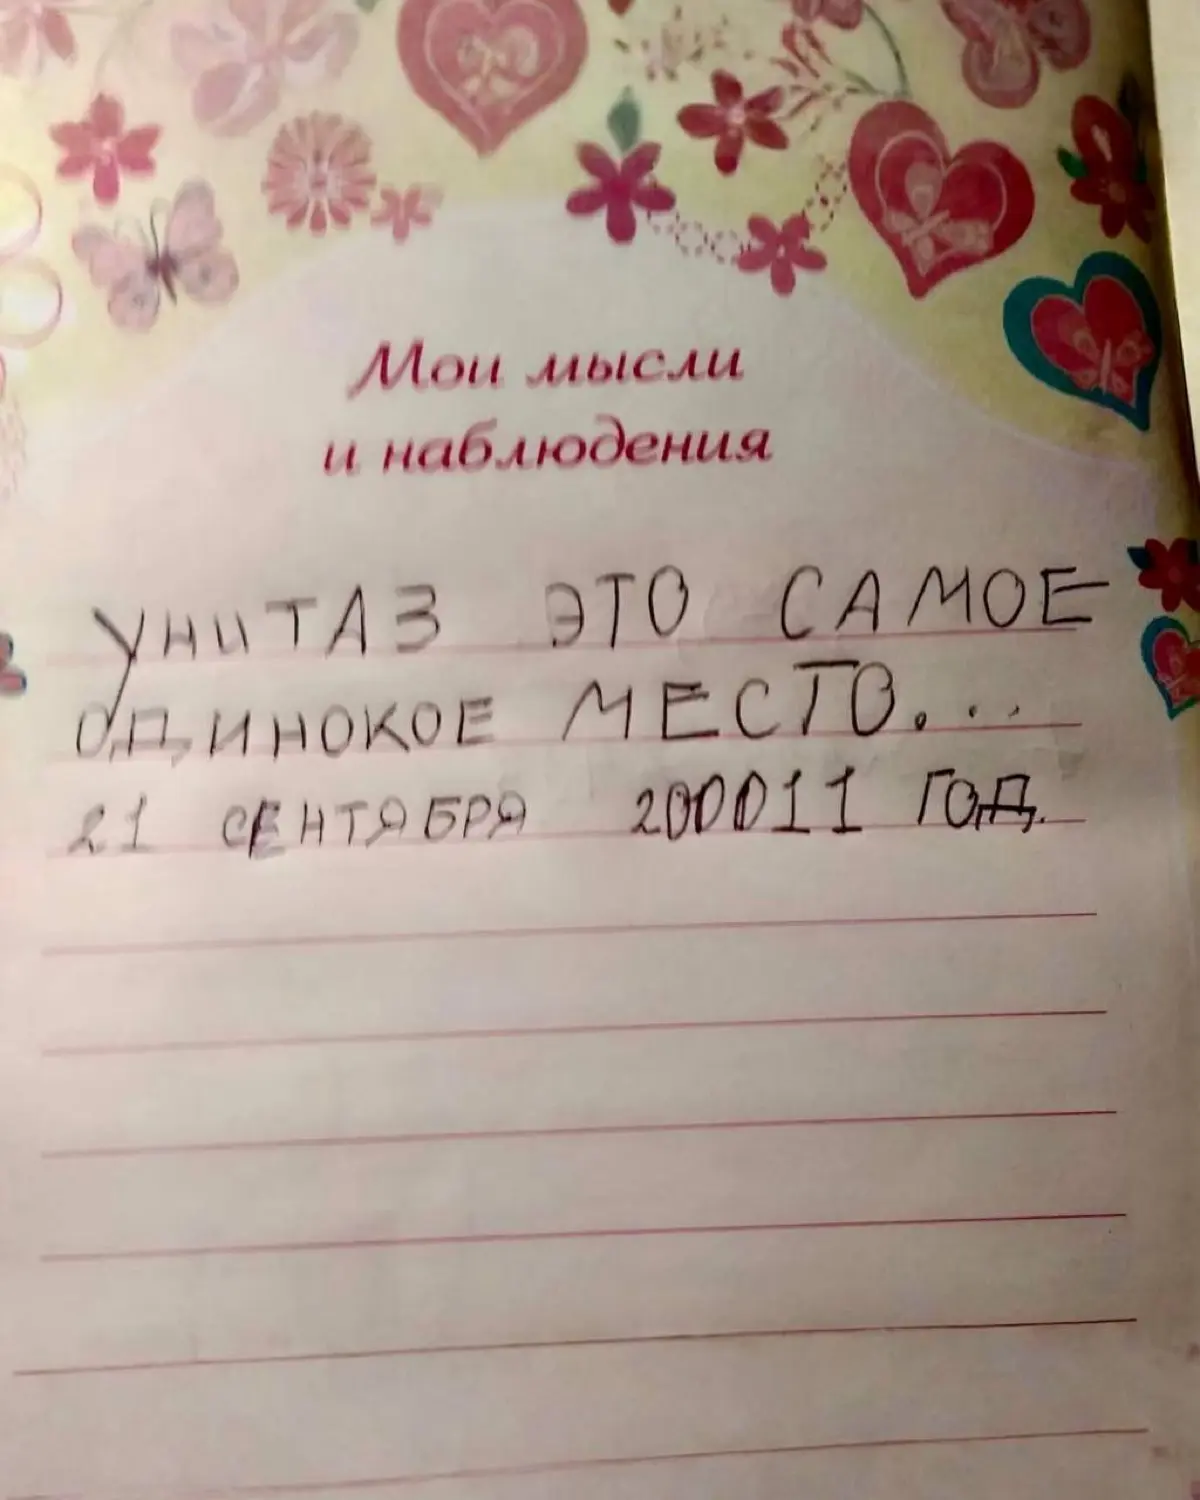 Мои мысли
и наблюдения
УНИТАЗ ЭТО САМОЕ
ОДИНОКОЕ МЕСТО...
21 СЕНТЯБРЯ 200011 ГОД.